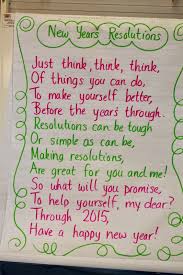 New Years Resolutions
Just think, think, think,
Of things you can do,
To make yourself better,
Before the years through.
Resolutions can be tough
Or simple as can be,
Making resolutions,
Are great for you and me!
So what will you promise,
To help yourself, my dear?
Through 2015,
Have a happy new year!